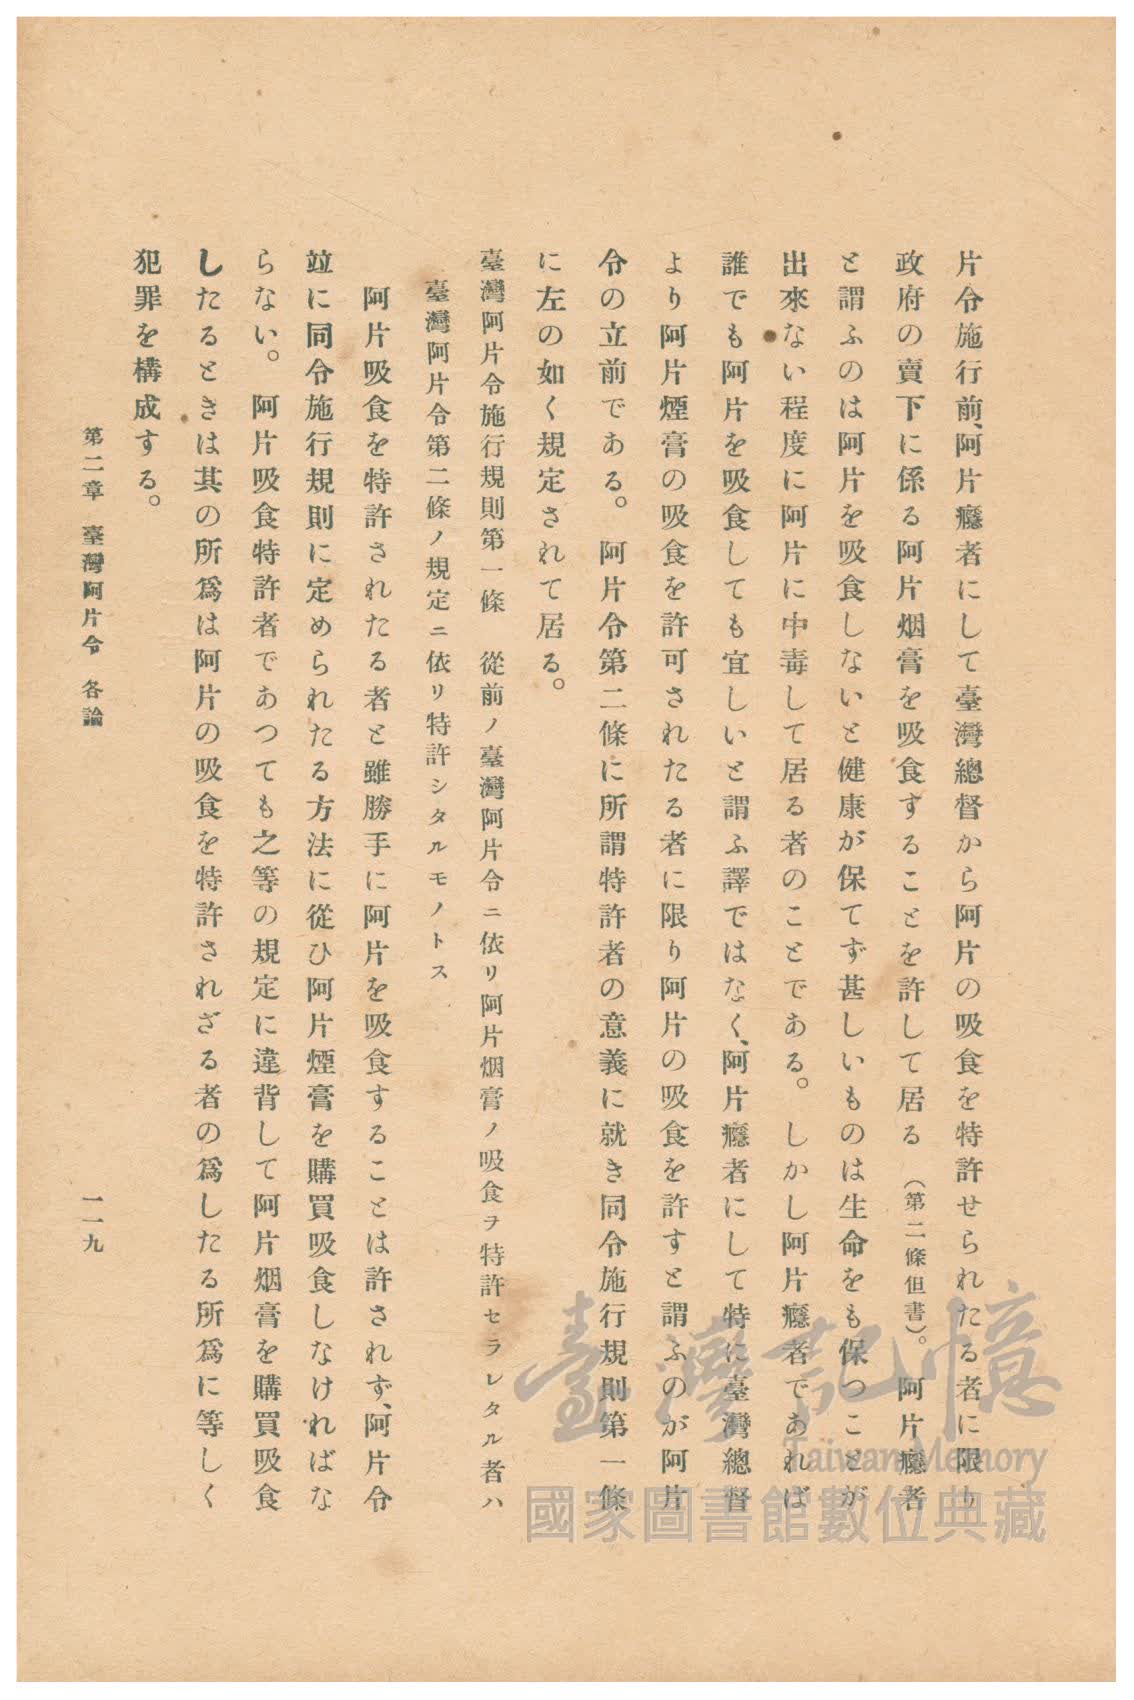 片令施行前、阿片癮者にして臺灣總督から阿片の吸食を特許せられたる者に限り
政府の賣下に係る阿片烟膏を吸食することを許して居る（第二條但書）。阿片癮者
と謂ふのは阿片を吸食しないと健康が保てず甚しいものは生命をも保つことが
出來ない程度に阿片に中毒して居る者のことである。しかし阿片癮者であれば
誰でも阿片を吸食しても宜しいと謂ふ譯ではなく、阿片癮者にして特に臺灣總督
より阿片煙膏の吸食を許可されたる者に限り阿片の吸食を許すと謂ふのが阿片
令の立前である。阿片令第二條に所謂特許者の意義に就き同令施行規則第一條
に左の如く規定されて居る。
臺灣阿片令施行規則第一條　從前ノ臺灣阿片令ニ依リ阿片烟膏ノ吸食ヲ特許セラレタル者ハ
臺灣阿片令第二條ノ規定ニ依リ特許シタルモノトス
阿片吸食を特許されたる者と雖勝手に阿片を吸食することは許されず、阿片令
竝に同令施行規則に定められたる方法に從ひ阿片煙膏を購買吸食しなければな
らない。阿片吸食特許者であつても之等の規定に違背して阿片烟膏を購買吸食
したるときは其の所爲は阿片の吸食を特許されざる者の爲したる所爲に等しく
犯罪を構成する。
第二章　臺灣阿片令　各論
一一九
臺灣記憶
Taiwan Memory
國家圖書館數位典藏